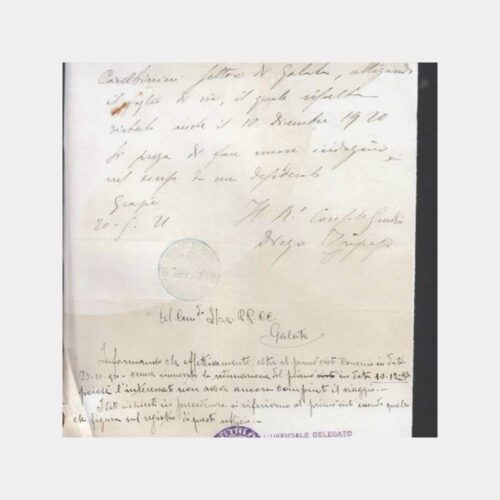 Carabinieri Settore di Galata, allegando
il foglio di via, il quale risulta
vistato anche il 10 dicembre 1920
Si prega di fare nuove indagini
nel senso da me desiderato
Grazie
20-5-21
Il R.° Console Giudice
Diego
Al Com.do Staz. RR.CC.
Galata
Informando che effettivamente, oltre al primo visto concesso in data
venne rinnovata la vidimazione del primo visto in data 10-12-920
poiché l'interessato non aveva ancora compiuto il viaggio.-
I dati richiesti in precedenza si riferivano al primo visto essendo quello
che figura sul registro di questo ufficio.-
L'UFFICIALE DELEGATO